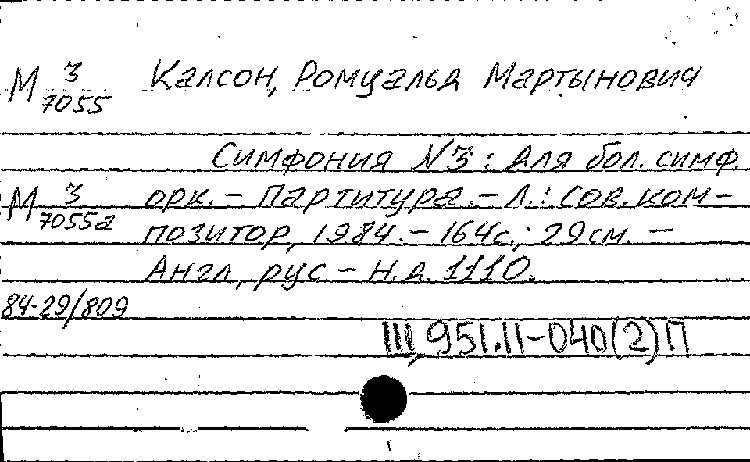 М 3/7055 Калсон, Ромуальд Мартынович
Симфония №3: Для бол. симф.
М 3/7055а орк. - Партитура. - Л.: Сов. ком-
позитор, 1984. - 164с.; 29см. -
Англ, рус - Н.д. 1110.
84-29/809
III, 951.11-040(2)П